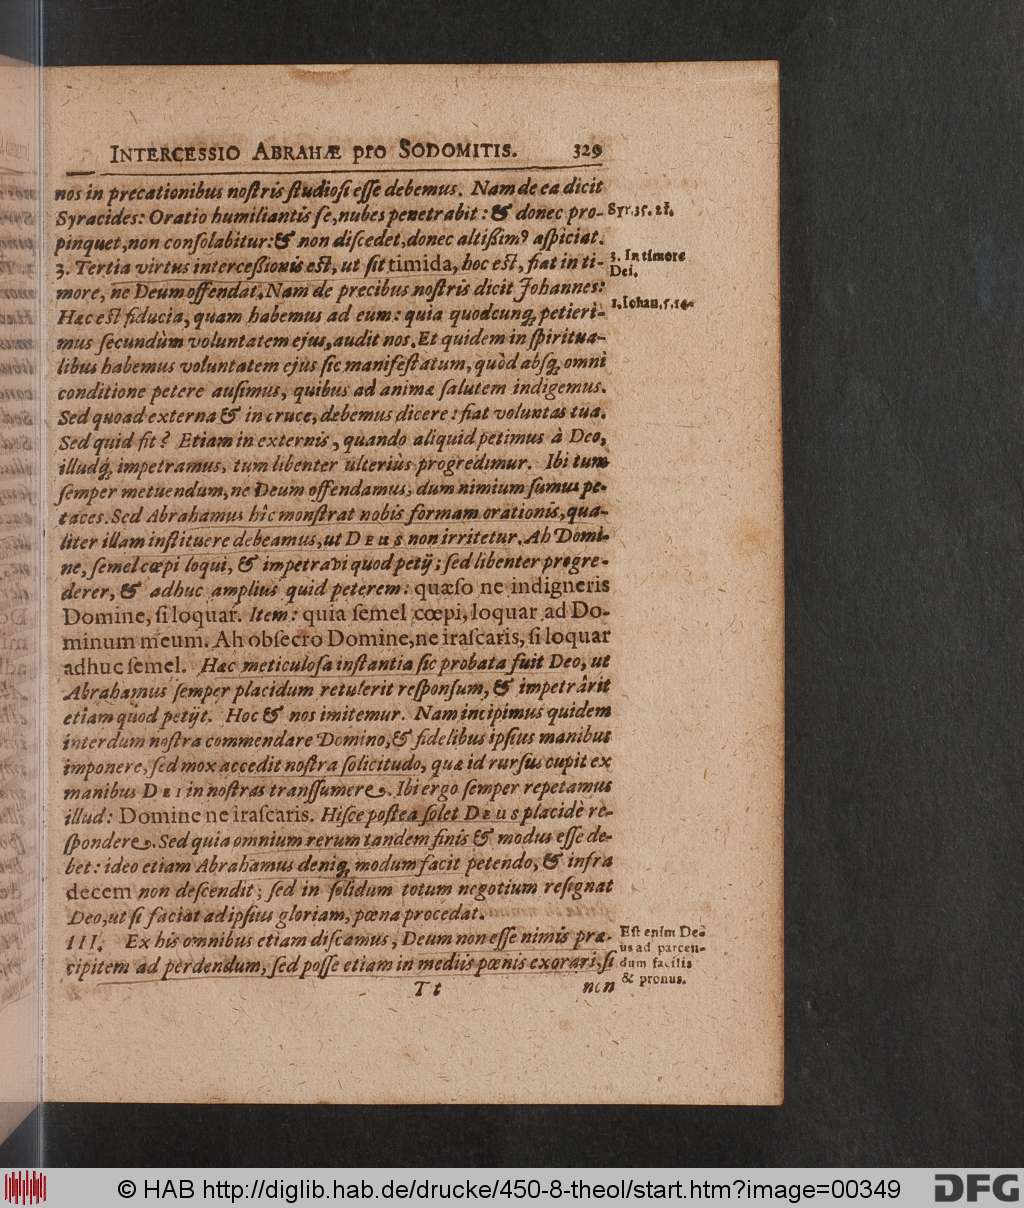 INTERCESSIO ABRAHÆ pro SODOMITIS. 329
nos in precationibus noſtris ſtudioſi eſſe debemus. Nam de ea dicit
Syracides: Oratio humiliantis ſe, nubes penetrabit: & donec pro-
Syr. 35. 21.
pinquet, non conſolabitur: & non diſcedet, donec altißimꝰ aſpiciat.
3. Tertia virtus interceſſionis eſt, ut ſit timida, hoc eſt, fiat in ti-
3. In timore
Dei.
more, ne Deum offendat. Nam de precibus noſtris dicit Johannes:
1. Iohan. 5. 14.
Hæc eſt fiducia, quam habemus ad eum: quia quodcunq; petieri-
mus ſecundùm voluntatem ejus, audit nos. Et quidem in ſpiritua-
libus habemus voluntatem ejus ſic manifeſtatum, quòd abſq; omni
conditione petere auſimus, quibus ad animæ ſalutem indigemus.
Sed quoad externa & in cruce, debemus dicere: fiat voluntas tua.
Sed quid fit? Etiam in externis, quando aliquid petimus à Deo,
illudq; impetramus, tum libenter ulteriùs progredimur. Ibi tum
ſemper metuendum, ne Deum offendamus, dum nimium ſumus pe-
taces. Sed Abrahamus hîc monſtrat nobis formam orationis, qua-
liter illam inſtituere debeamus, ut DEUS non irritetur. Ah Domi-
ne, ſemel cœpi loqui, & impetravi quod petij; ſed libenter progre-
derer, & adhuc amplius quid peterem: quæſo ne indigneris
Domine, ſi loquar. Item: quia ſemel cœpi, loquar ad Do-
minum meum. Ah obſecro Domine, ne iraſcaris, ſi loquar
adhuc ſemel. Hæc meticuloſa inſtantia ſic probata fuit Deo, ut
Abrahamus ſemper placidum retulerit reſponſum, & impetrârit
etiam quod petijt. Hoc & nos imitemur. Nam incipimus quidem
interdum noſtra commendare Domino, & fidelibus ipſius manibus
imponere, ſed mox accedit noſtra ſolicitudo, quæ id rurſus cupit ex
manibus DEI in noſtras tranſſumere. Ibi ergo ſemper repetamus
illud: Domine ne iraſcaris. Hiſce poſtea ſolet DEUS placidè re-
ſpondere. Sed quia omnium rerum tandem finis & modus eſſe de-
bet: ideo etiam Abrahamus deniq; modum facit petendo, & infra
decem non deſcendit; ſed in ſolidum totum negotium reſignat
Deo, ut ſi faciat ad ipſius gloriam, pœna procedat.
III. Ex his omnibus etiam diſcamus, Deum non eſſe nimis præ-
cipitem ad perdendum, ſed poſſe etiam in mediis pœnis exorari, ſi
Eſt enim De-
us ad parcen-
dum facilis
& pronus.
Tt non
© HAB http://diglib.hab.de/drucke/450-8-theol/start.htm?image=00349
DFG